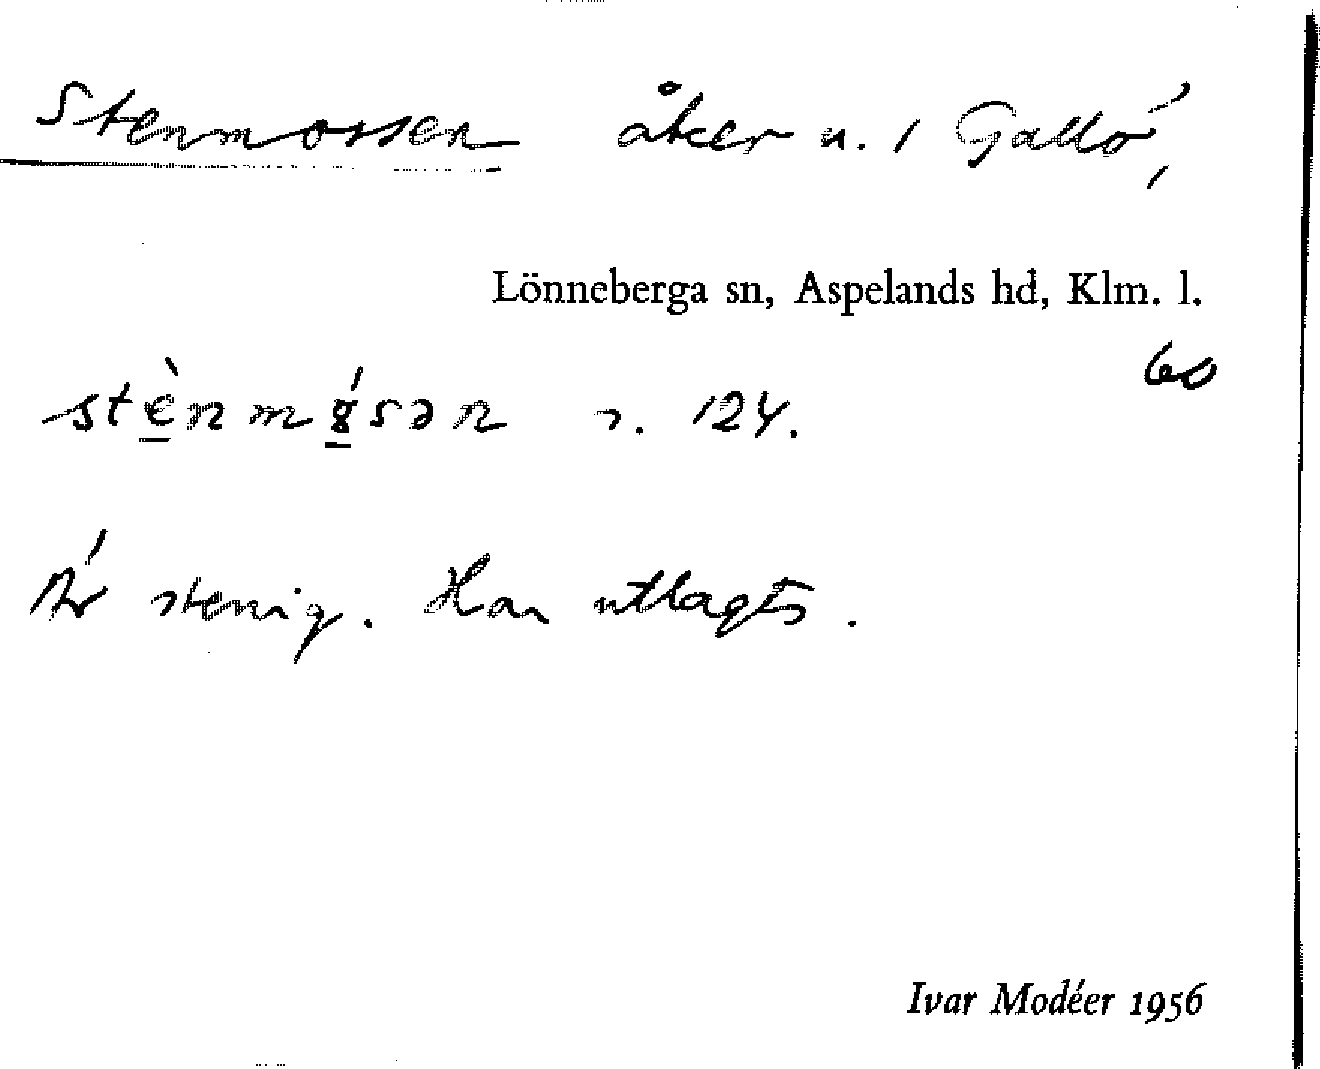 Stenmossen åker u. / Gallö,
Lönneberga sn, Aspelands hd, Klm. l.
60
stènmósən r. 124.
Är stenig. Har utlagts.
Ivar Modéer 1956